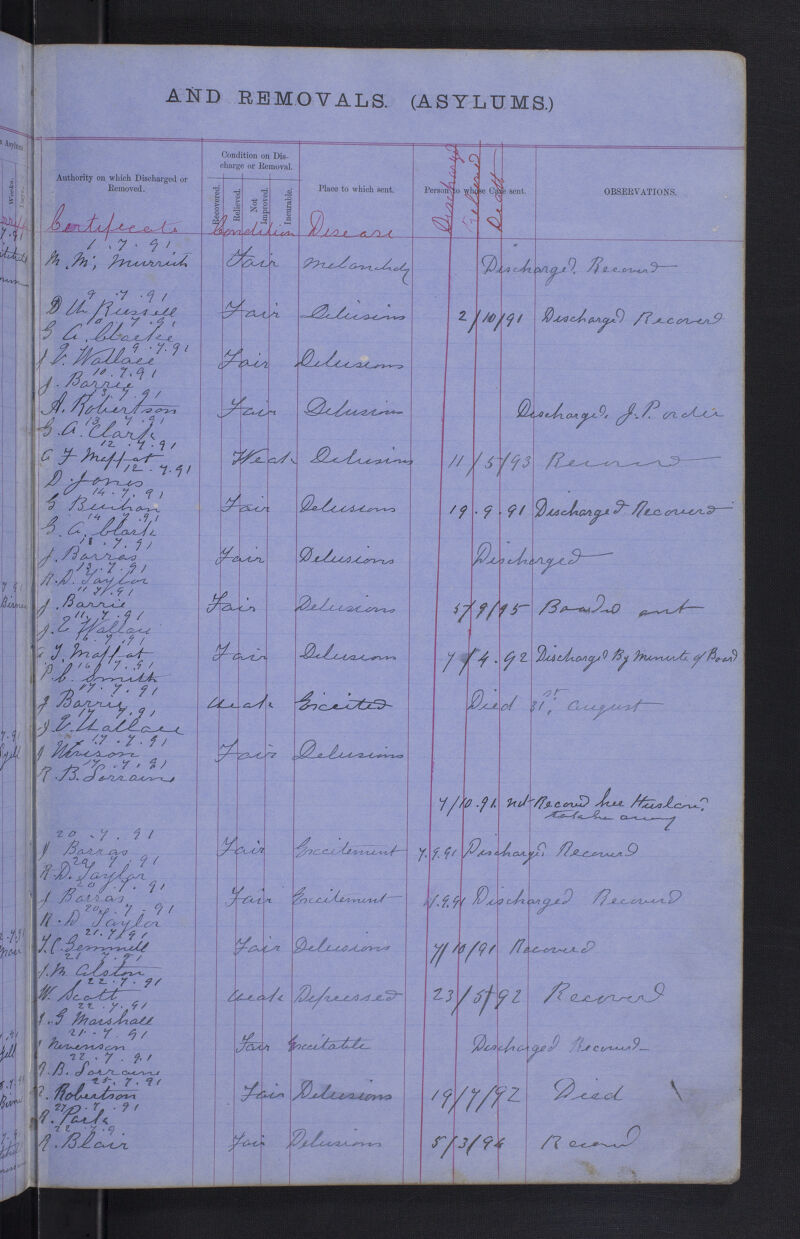 AND REMOVALS. (ASYLUMS.)
Authority on which Discharged or Removed.
Condition on Discharge or Removal.
Recovered. Relieved. Not Improved. Incurable.
Place to which sent.
Person to whose Care sent.
OBSERVATIONS.
Certificate Condition Disease Discharged Death
1.7.91
Fair Discharged, Recovered
9.7.91
Russell Fair Delusions 2/10/91 Discharged Recovered
G A. Clarke
9.7.91
J. Wallace Fair Delusions
10.7.91
J. Barrie
13.7.91
A. Robertson Fair Delusions Discharged, J.P. order
13.7.91
G. A. Clark
12.7.91
A F Maffat Weak Delusions 11/5/93 Recovered
12.7.91
D. Jones
14.7.91
G Fair Delusions 19.9.91 Discharged Recovered
14.7.91
G. A. Clark
J. Barras Fair Delusions Discharged
13.7.91
R.D. Taylor
11.7.91
J. Barrie Fair Delusions 5/9/95 Boarded out
11.7.91
Wallace
16.7.91
F. Maffat Fair Delusions 7/4.92 Discharged By Minute of Board
P.C. Smith
17.7.91
J Barrie Weak Excited Died 31st. August
17.7.91
Wallace
17.7.91
Fair Delusions
17.7.91
R. B. Lorraine
7/10.91. not Recovered her Husband
20.7.91
J Barras Fair Excitement 7.9.91 Discharged Recovered
20.7.91
R.D. Taylor
20.7.91
J Barras Fair Excitement Discharged Recovered
20.7.91
R.D Taylor
21.7.91
T.C. Gemmill Fair Delusions 7/10/91 Recovered
21.7.91
J.M. Alston
22.7.91
W. Scott Weak Depressed 23/5/92 Recovered
22.7.91
J.G Marshall
21.7.91
J Nevenson Fair Excitable Discharged Recovered
22.7.91
R.B. Lorraine
25.7.91
Robertson Fair Delusions 19/7/92 Died
R. Park
R. Blair Fair Delusions 5/3/94